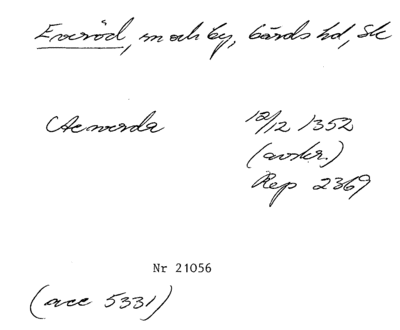 Everöd, sn och by, Gärds hd, Sk
Aeworda
12/12 1352
(avskr.)
Rep 2369
Nr 21056
(acc 5331)